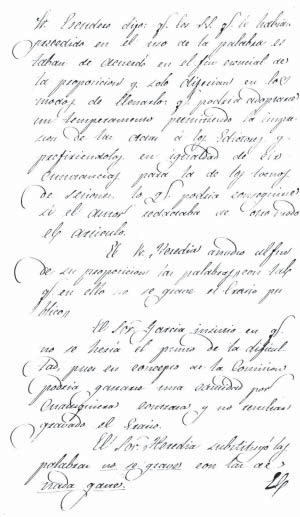 Sr. Escudero dijo: q.e los SS. q.e le habian
precedido en el uso de la palabra es
taban de acuerdo en el fin esencial de
la proposicion y solo diferian en los
modos de llenarlo: q.e podria adoptarse
un temperamento permitiendo la impre
sion de las actas á los Editores y
prefiriendolos en igualdad de cir
cunstancias para la de los
de seciones. lo q.e podria conseguirse
si el autor redactaba de otro modo
el articulo.
El Sr. Heredia añadio al fin
de su proposicion las palabras, con tal
q.e en ello no se grave el Erario pu
blico.
El Sor. Garcia insistio en q.e
no se hería el punto de la dificul
tad, pues en concepto de la Comision
podria ganarse una cantidad por
cualquiera contrata y no resultar
gravado el Erario.
El Sor. Heredia substituyó las
palabras no se grave con las de
nada gaste.
El